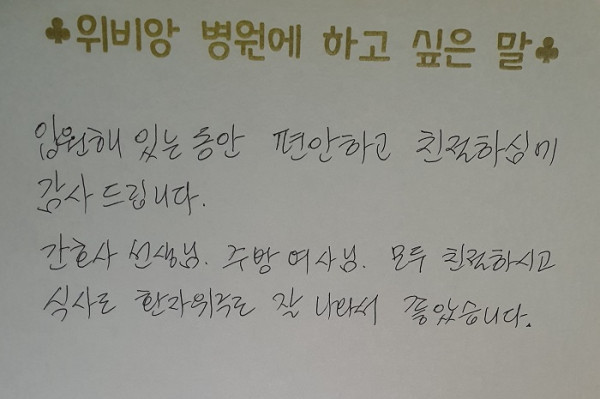 ♣위비앙 병원에 하고 싶은 말♣
입원해 있는 동안 편안하고 친절하심에
감사 드립니다.
간호사 선생님. 주방 여사님. 모두 친절하시고
식사도 환자위주로 잘 나와서 좋았습니다.